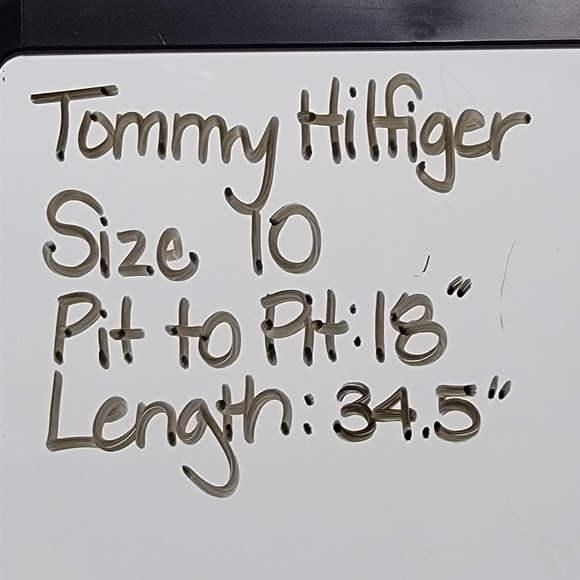 Tommy Hilfiger
Size 10
Pit to Pit: 18"
Length: 34.5"